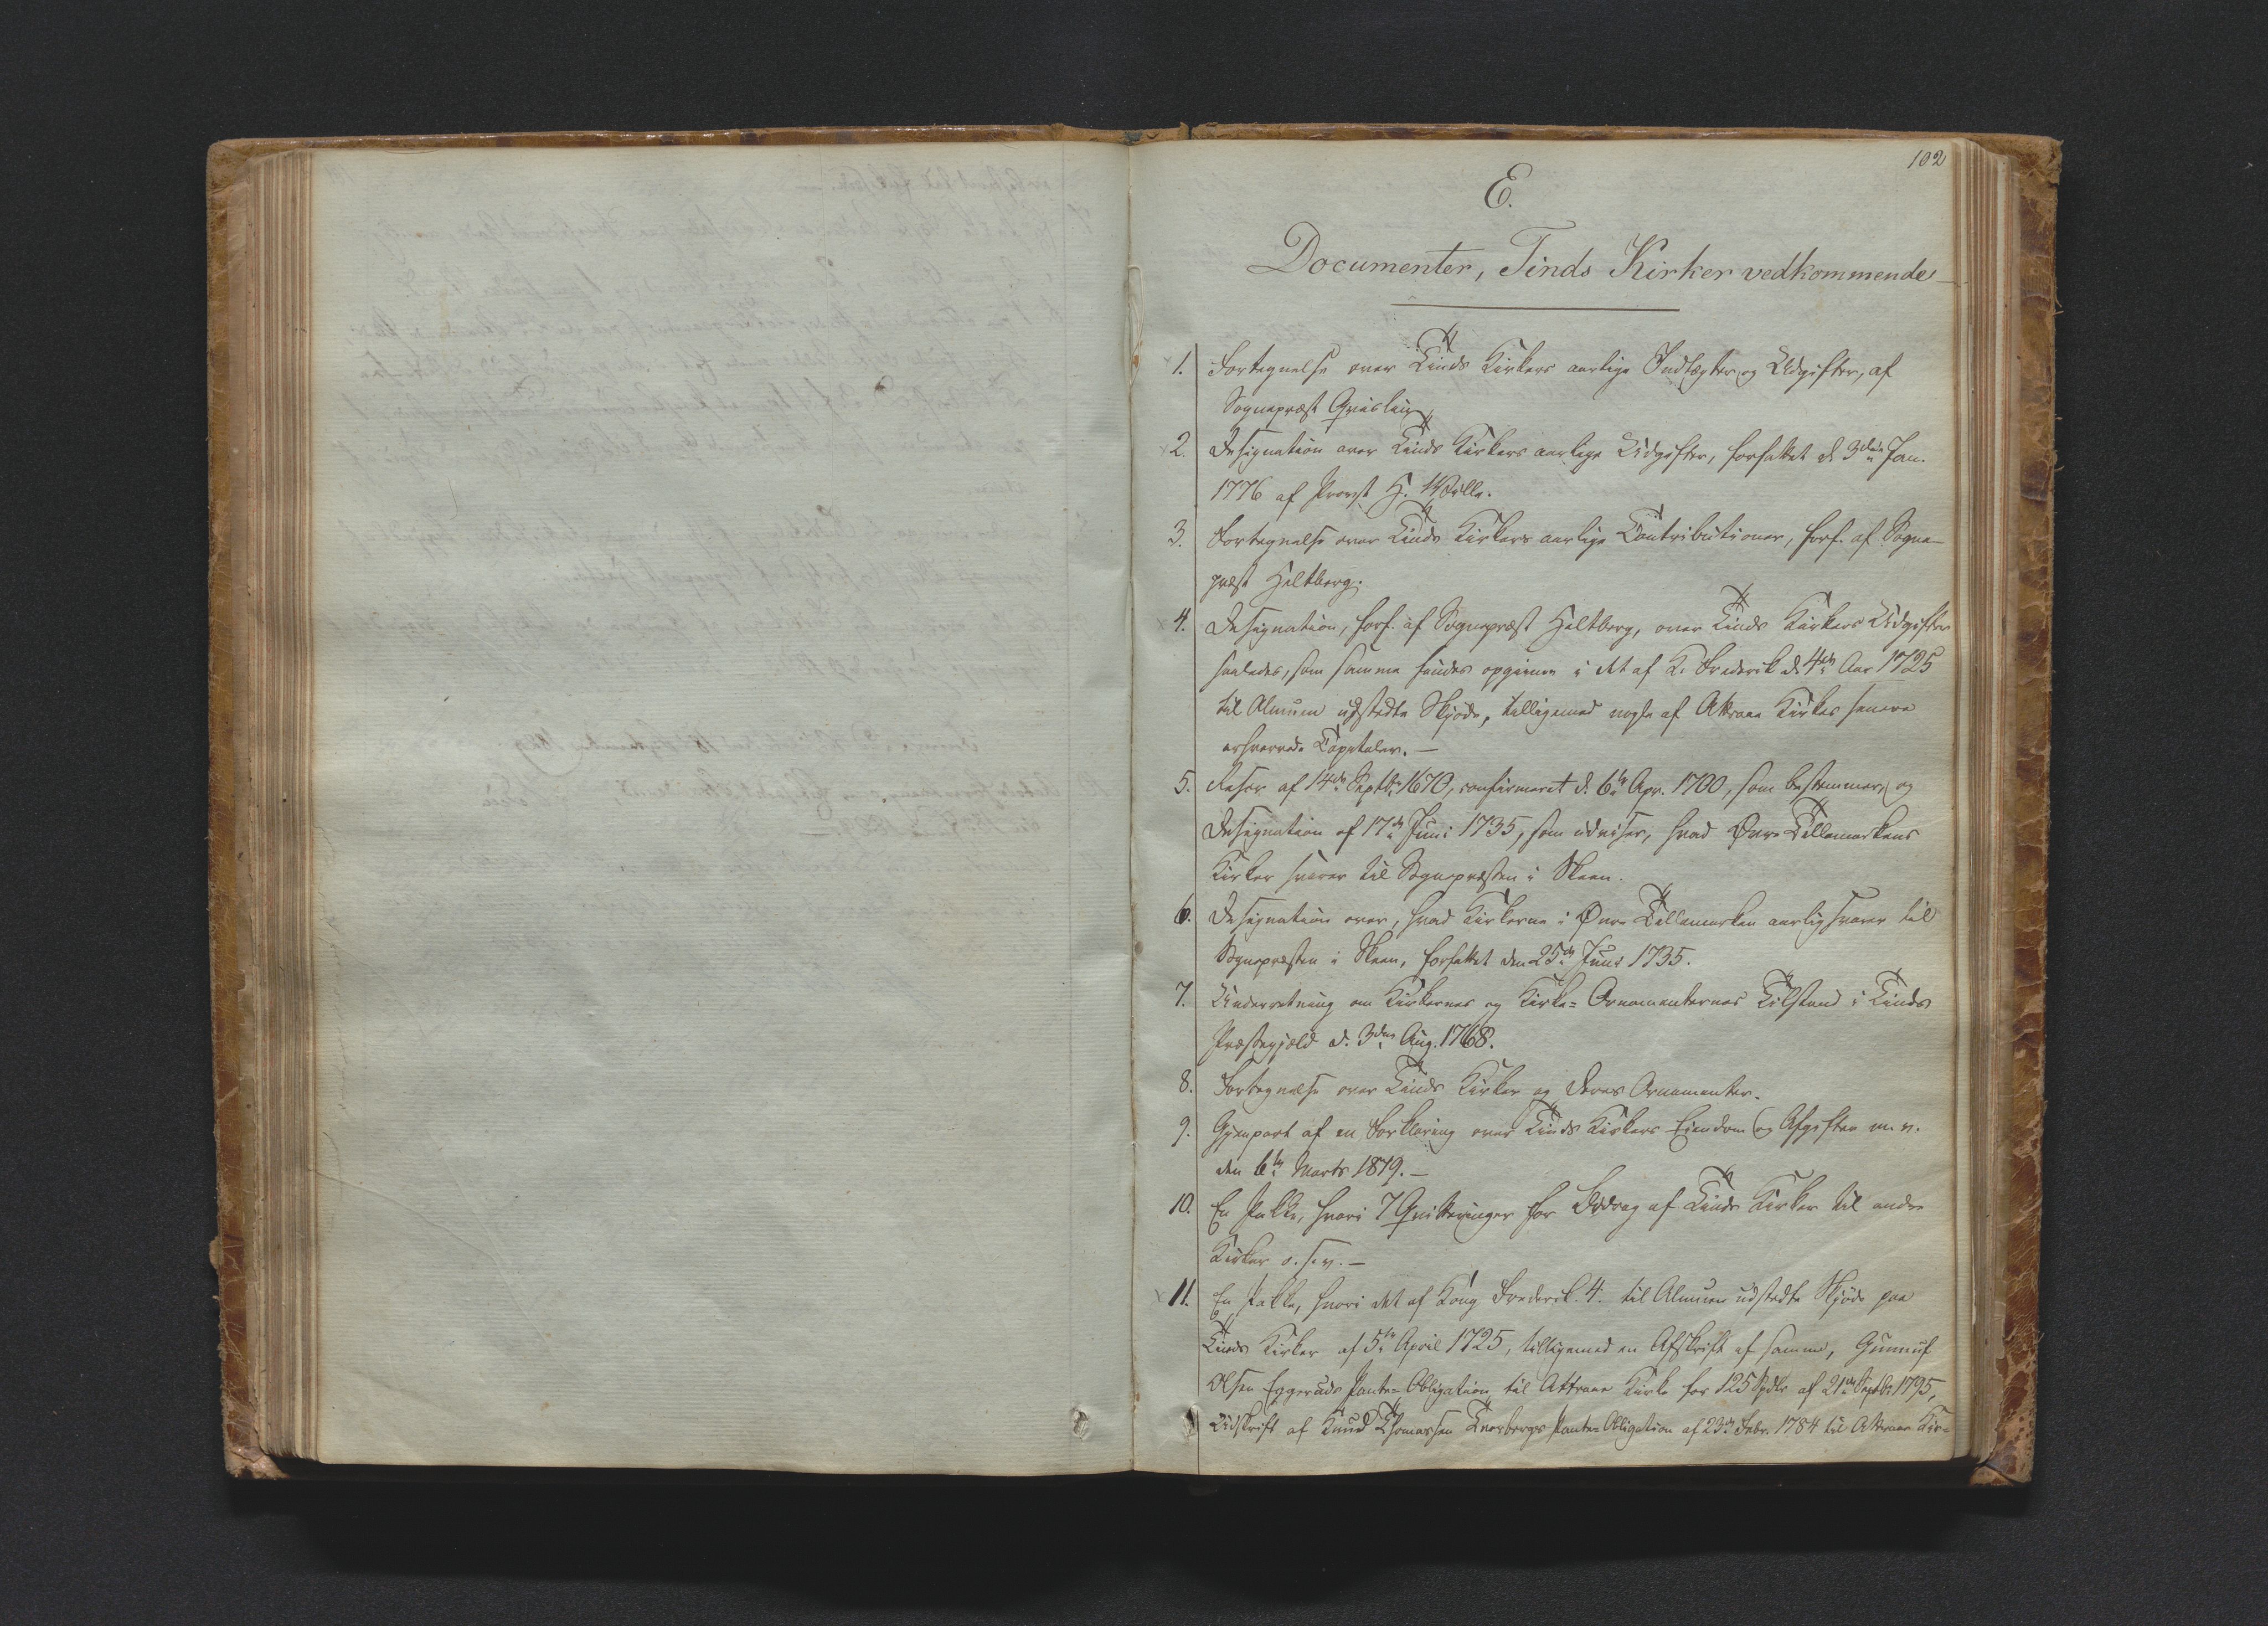 102
E.
Documenter, Tinds Kirker vedkommende
1. Fortegnelse over Tinds Kirkers aarlige Indtægter og Udgifter, af
Sognepræst Qvisling
2. Designation over Tinds Kirkers aarlige Udgifter, forfattet d. 3die Jan.
1776 af Provst H. Wille.
3. Fortegnelse over Tinds Kirkers aarlige Contributioner, forf. af Sogne-
præst Heltberg.
4. Designation, forf. af Sognepræst Heltberg, over Tinds Kirkers Udgifter
saaledes, som samme findes opgivne i det af K. Frederik d. 4de Aar 1725
til Almuen udstedte Skjøde, tilligemed nogle af Attraae Kirkes senere
erhvervede Capitaler. —
5. Reser af 14de Septbr 1670, confirmeret d. 6te Apr. 1700, som bestemmer, og
Designation af 17de Juni 1735, som udviser, hvad Øvre Tellemarkens
Kirker svarer til Sognepræsten i Skeen.
6. Designation over, hvad Kirkerne i Øvre Tellemarken aarlig svarer til
Sognepræsten i Skeen, forfattet den 25de Juni 1735.
7. Underretning om Kirkernes og Kirke-Ornamenternes Tilstand i Tinds
Præstegjæld d. 3die Aug. 1768.
8. Fortegnelse over Tinds Kirker og deres Ornamenter.
9. Gjenpart af en Forklaring over Tinds Kirkers Eiendom og Afgifter m. v.
den 6te Marts 1819. —
10. En Pakke, hvori 7 Qvitteringer for Bidrag af Tinds Kirker til andre
Kirker o. s. v. —
11. En Pakke, hvori det af Kong Frederik 4. til Almuen udstedte Skjøde paa
Tinds Kirker af 5te April 1725, tilligemed en Afskrift af samme, Gunnuf
Olsen Eggeruds Pante-Obligation til Attraae Kirke for 125 Spdlr af 21de Septbr 1795,
Udskrift af Knud Thomassen Pante-Obligation af 23de Febr. 1784 til Attraae Kir-